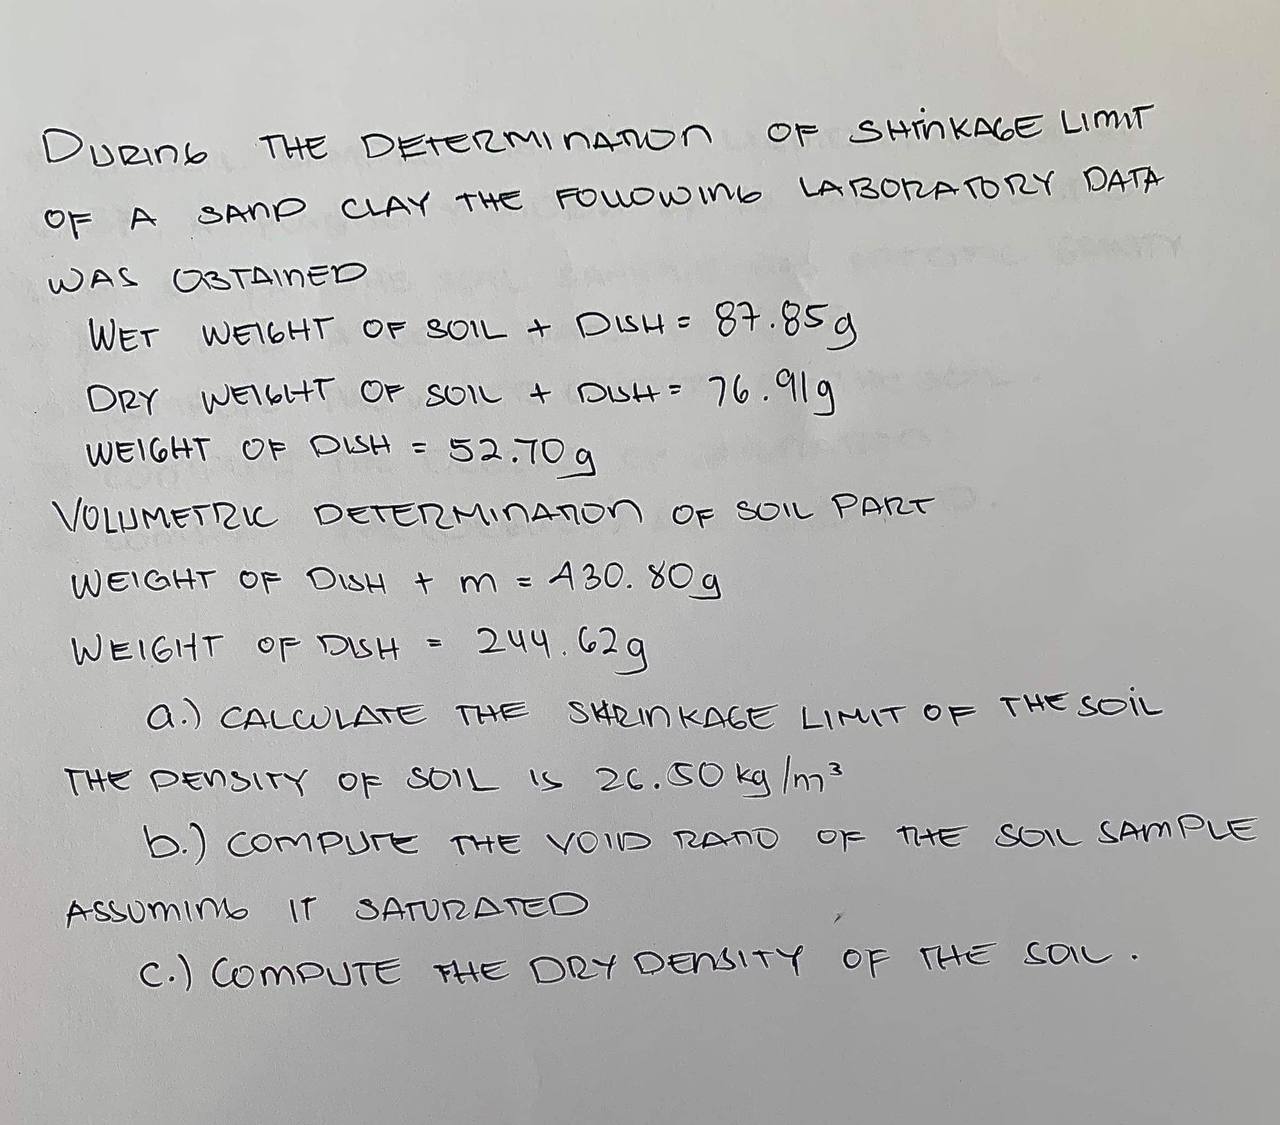 DURING THE DETERMINATION OF SHINKAGE LIMIT
OF A SAND CLAY THE FOLLOWING LABORATORY DATA
WAS OBTAINED
WET WEIGHT OF SOIL + DISH = 87.85g
DRY WEIGHT OF SOIL + DISH = 76.91g
WEIGHT OF DISH = 52.70g
VOLUMETRIC DETERMINATION OF SOIL PART
WEIGHT OF DISH + m = 430.80g
WEIGHT OF DISH = 244.62g
a.) CALCULATE THE SHRINKAGE LIMIT OF THE SOIL
THE DENSITY OF SOIL IS 26.50 kg/m³
b.) COMPUTE THE VOID RATIO OF THE SOIL SAMPLE
ASSUMING IT SATURATED
C.) COMPUTE THE DRY DENSITY OF THE SOIL.